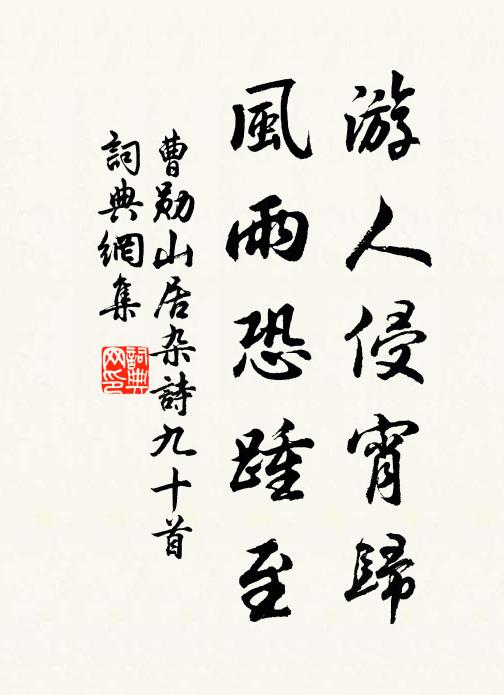 游人侵宵歸
風雨恐踵至
曹勛山居杂詩九十首
詞典網集
詞典
网印